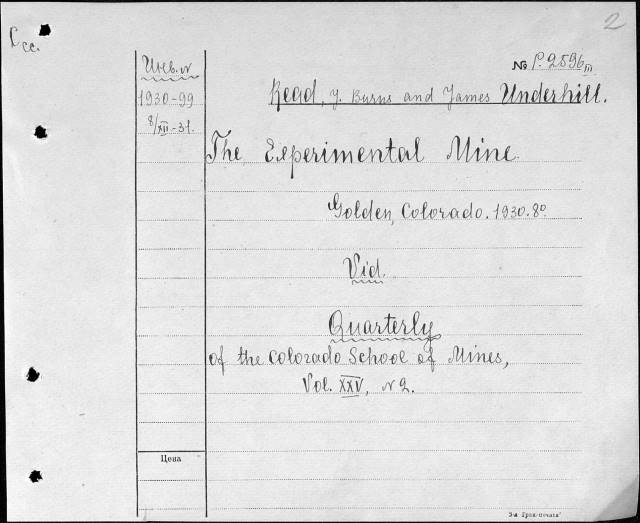 2
№ P.2596 III
Инв. №
1930-99
8/XII-31.
Read, J. Burns and James Underhill.
The Experimental Mine.
Golden, Colorado. 1930. 8º
Vid.
Quarterly
of the Colorado School of Mines,
Vol. XXV, № 2.
Цена